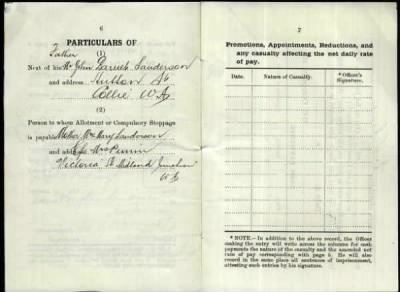 6
PARTICULARS OF
Father (1)
Next of his Mr John Sanderson
and address Hutton St
Collie W.A.
(2)
Person to whom Allotment or Compulsory Stoppage
is payable Mother Mrs Mary Sanderson
and address Mrs
Victoria St Midland Junction
W.A.
7
Promotions, Appointments, Reductions, and
any casualty affecting the net daily rate
of pay.
Date. Nature of Casualty. * Officer's
Signature.
* NOTE.—In addition to the above record, the Officer
making the entry will write across the columns for cash
payments the nature of the casualty and the amended net
rate of pay corresponding with page 5. He will also
record in the same place all sentences of imprisonment,
attesting such entries by his signature.